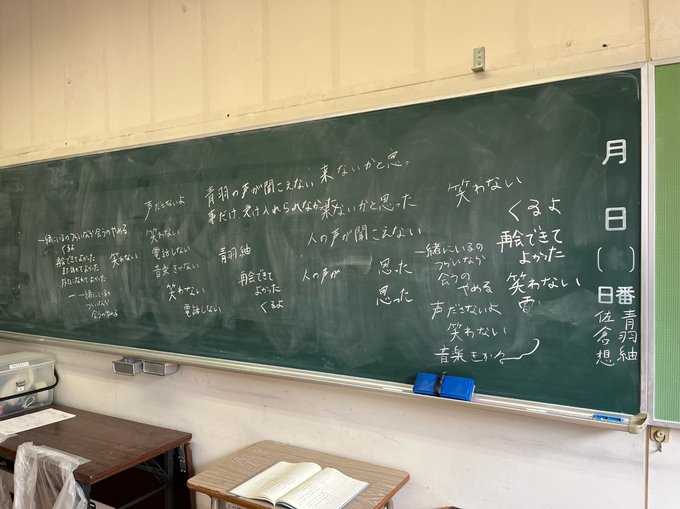 月
日
(　)
日番
青羽紬
佐倉想
青羽の声が聞こえない 来ないかと思っ
事だけ受け入れられなか 来ないかと思った
人の声が聞こえない
人の声が
思った
思った
声ださないよ
笑わない
電話しない
音楽きかない
笑わない
電話しない
青羽紬
再会できて
よかった
くるよ
一緒にいるのつらいなら会うのやめる
くる
再会できてよかった
また話せてよかった
笑わない
一緒にいるの
つらいなら
会うのやめる
笑わない
くるよ
再会できて
よかった
一緒にいるの
つらいなら
会うの
やめる
笑わない
電
声ださないよ
笑わない
音楽きか